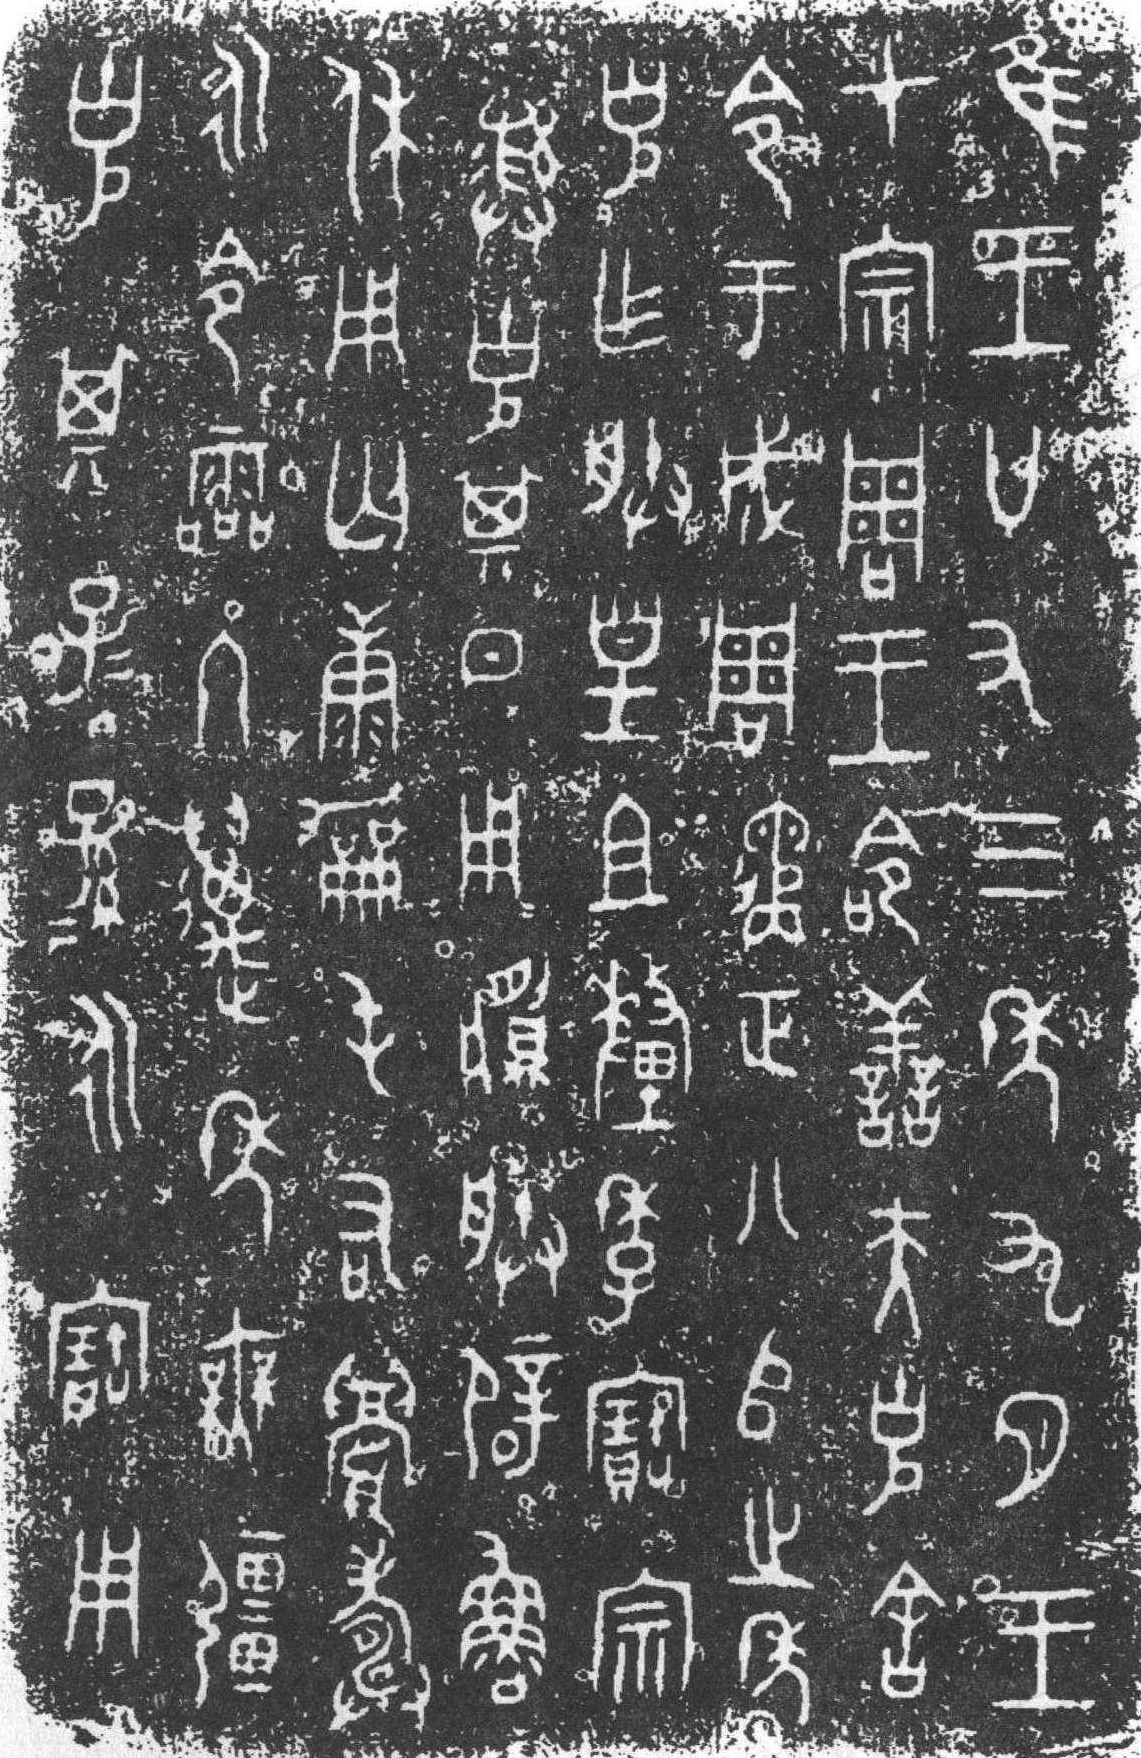 隹王廿又三年九月王
才宗周王令善夫克舍
令于成周遹正八𠂤之年
克乍朕皇且釐季寶宗
彝克其日用䵼朕辟魯
休用匄康勔屯右眉壽
永令霝冬萬年無彊
克其子=孫=永寶用